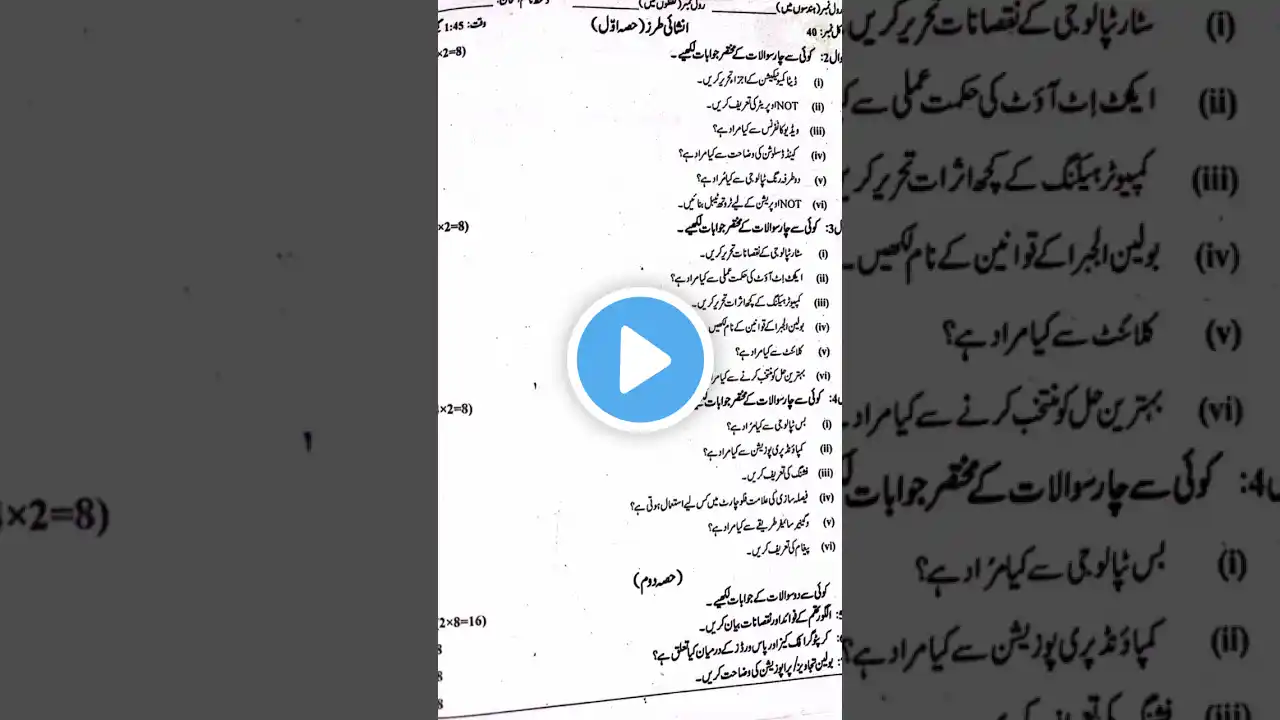 رول نمبر (ہندسوں میں)
رول نمبر (لفظوں میں)
وقت: 1:45
انشائی طرز (حصہ اوّل)
کل نمبر: 40
×2=8)
کوئی سے چار سوالات کے مختصر جوابات لکھیے۔
(i) ڈیٹا کمیونیکیشن کے اجزاء تحریر کریں۔
(ii) NOT اوپریٹر کی تعریف کریں۔
(iii) ویڈیو کانفرنس سے کیا مراد ہے؟
(iv) کینڈڈ سلوشن کی وضاحت سے کیا مراد ہے؟
(v) دو طرفہ رنگ ٹپالوجی سے کیا مراد ہے؟
(vi) NOT اوپریشن کے لیے ٹروتھ ٹیبل بنائیں۔
×2=8)
ل3: کوئی سے چار سوالات کے مختصر جوابات لکھیے۔
(i) سٹار ٹپالوجی کے نقصانات تحریر کریں۔
(ii) ایکٹ اِٹ آؤٹ کی حکمت عملی سے کیا مراد ہے؟
(iii) کمپیوٹر ہیکنگ کے کچھ اثرات تحریر کریں۔
(iv) بولین الجبرا کے قوانین کے نام لکھیں
(v) کلائنٹ سے کیا مراد ہے؟
(vi) بہترین حل کو منتخب کرنے سے کیا مراد
×2=8)
ل4: کوئی سے چار سوالات کے مختصر جوابات
(i) بس ٹپالوجی سے کیا مراد ہے؟
(ii) کمپاؤنڈ پری پوزیشن سے کیا مراد ہے؟
(iii) فشنگ کی تعریف کریں۔
(iv) فیصلہ سازی کی علامت فلو چارٹ میں کس لیے استعمال ہوتی ہے؟
(v) وگنیئر سائیفر طریقے سے کیا مراد ہے؟
(vi) پیغام کی تعریف کریں۔
(حصہ دوم)
کوئی سے دو سوالات کے جوابات لکھیے۔
2×8=16)
الگورتھم کے فوائد اور نقصانات بیان کریں۔
کرپٹوگرافک کیز اور پاس ورڈز کے درمیان کیا تعلق ہے؟
8
بولین تجاویز/پراپوزیشن کی وضاحت کریں۔
8
×2=8)
(i) سٹار ٹپالوجی کے نقصانات تحریر کریں
(ii) ایکٹ اِٹ آؤٹ کی حکمت عملی سے
(iii) کمپیوٹر ہیکنگ کے کچھ اثرات تحریر
(iv) بولین الجبرا کے قوانین کے نام لکھیں۔
(v) کلائنٹ سے کیا مراد ہے؟
(vi) بہترین حل کو منتخب کرنے سے کیا مراد
ل4: کوئی سے چار سوالات کے مختصر جوابات
(i) بس ٹپالوجی سے کیا مراد ہے؟
(ii) کمپاؤنڈ پری پوزیشن سے کیا مراد ہے؟
(iii) فشنگ کی تعریف کریں۔